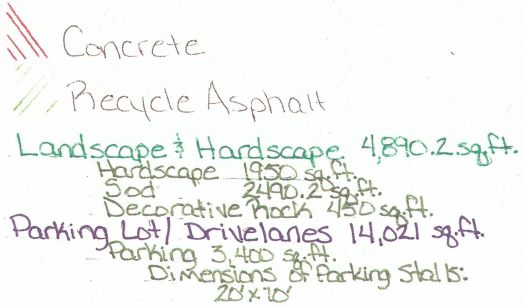 Concrete
Recycle Asphalt
Landscape & Hardscape 4,890.2 sq.ft.
Hardscape 1950 sq.ft.
Sod 2490.2 sq.ft.
Decorative Rock 450 sq.ft.
Parking Lot/ Drivelanes 14,021 sq.ft.
Parking 3,400 sq.ft.
Dimensions of Parking Stalls:
20' x 10'